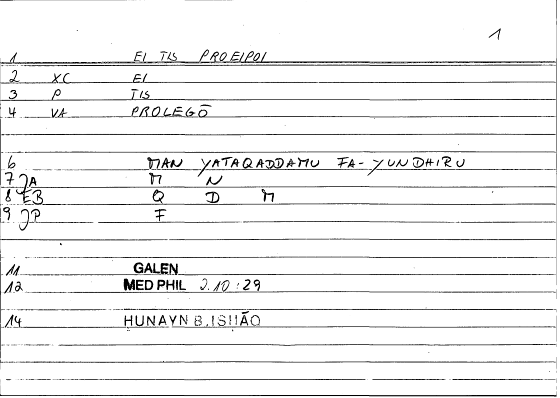 1
1 EI TIS PROEIPOI
2 XC EI
3 P TIS
4 VA PROLEGŌ
6 MAN YATAQADDAMU FA-YUNDHIRU
7 JA M N
8 EB Q D M
9 JP F
11 GALEN
12 MED PHIL 2.10:29
14 HUNAYN B.ISHĀQ